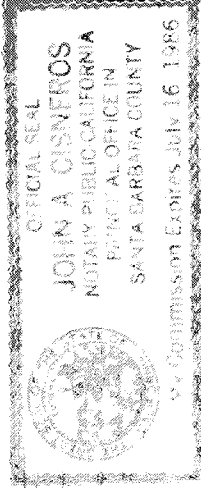 OFFICIAL SEAL
JOHN A CISNEROS
NOTARY PUBLIC CALIFORNIA
PRINCIPAL OFFICE IN
SANTA BARBARA COUNTY
My Commission Expires July 16, 1986